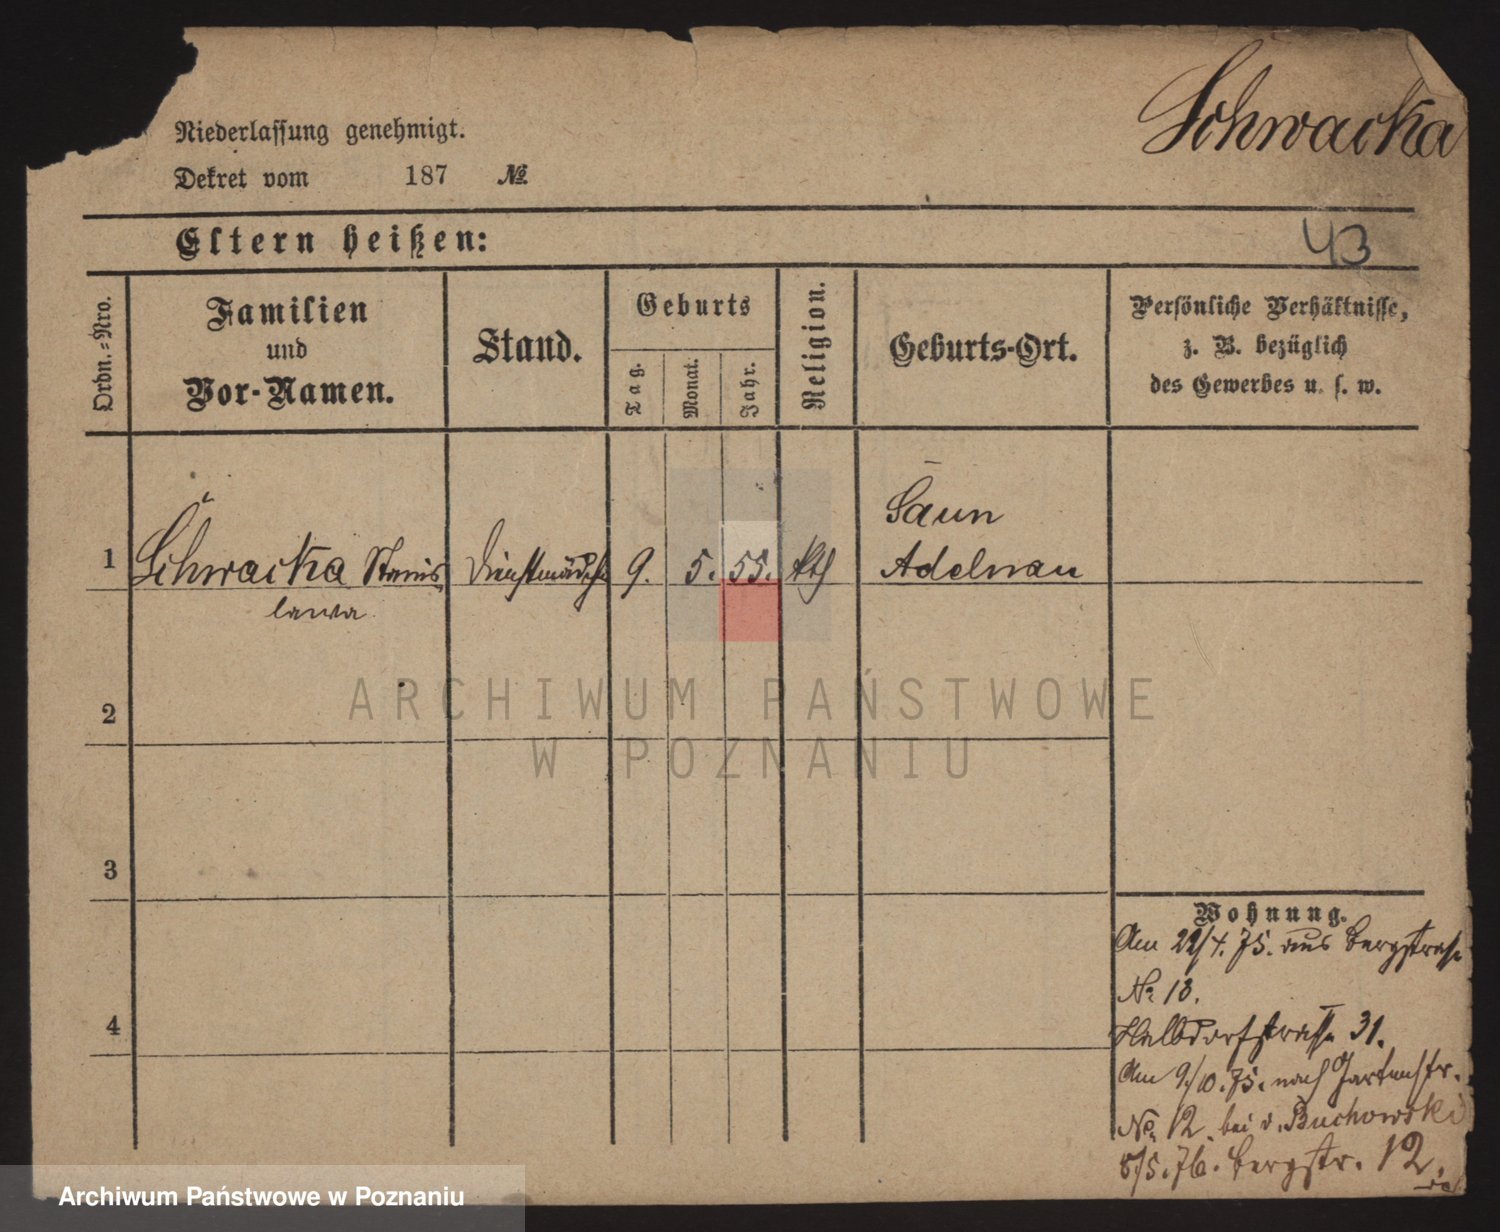 Schwacka
Niederlassung genehmigt.
Dekret vom 187 №
Eltern heißen:
43
Ordn.-Nro.
Familien
und
Vor-Namen.
Stand.
Geburts
Tag.
Monat.
Jahr.
Religion.
Geburts-Ort.
Persönliche Verhältnisse,
z. B. bezüglich
des Gewerbes u. s. w.
1 Schwacka Stanis Dienstmädch 9. 5. 55. kth Adelnau
lawa
2
ARCHIWUM PAŃSTWOWE
W POZNANIU
3
4
Wohnung.
Am 22/4. 75. aus Bergstrasse
№ 13.
Halbdorfstrasse 31.
Am 9/10. 75. nach Gartenstr.
No. 12. bei v. Buchowski
5/5. 76. Bergstr. 12.
Archiwum Państwowe w Poznaniu